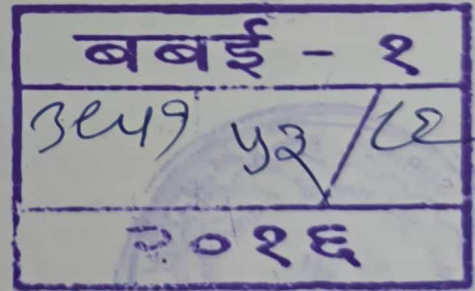 बबई - १
३८५१ ५३/८२
२०१६